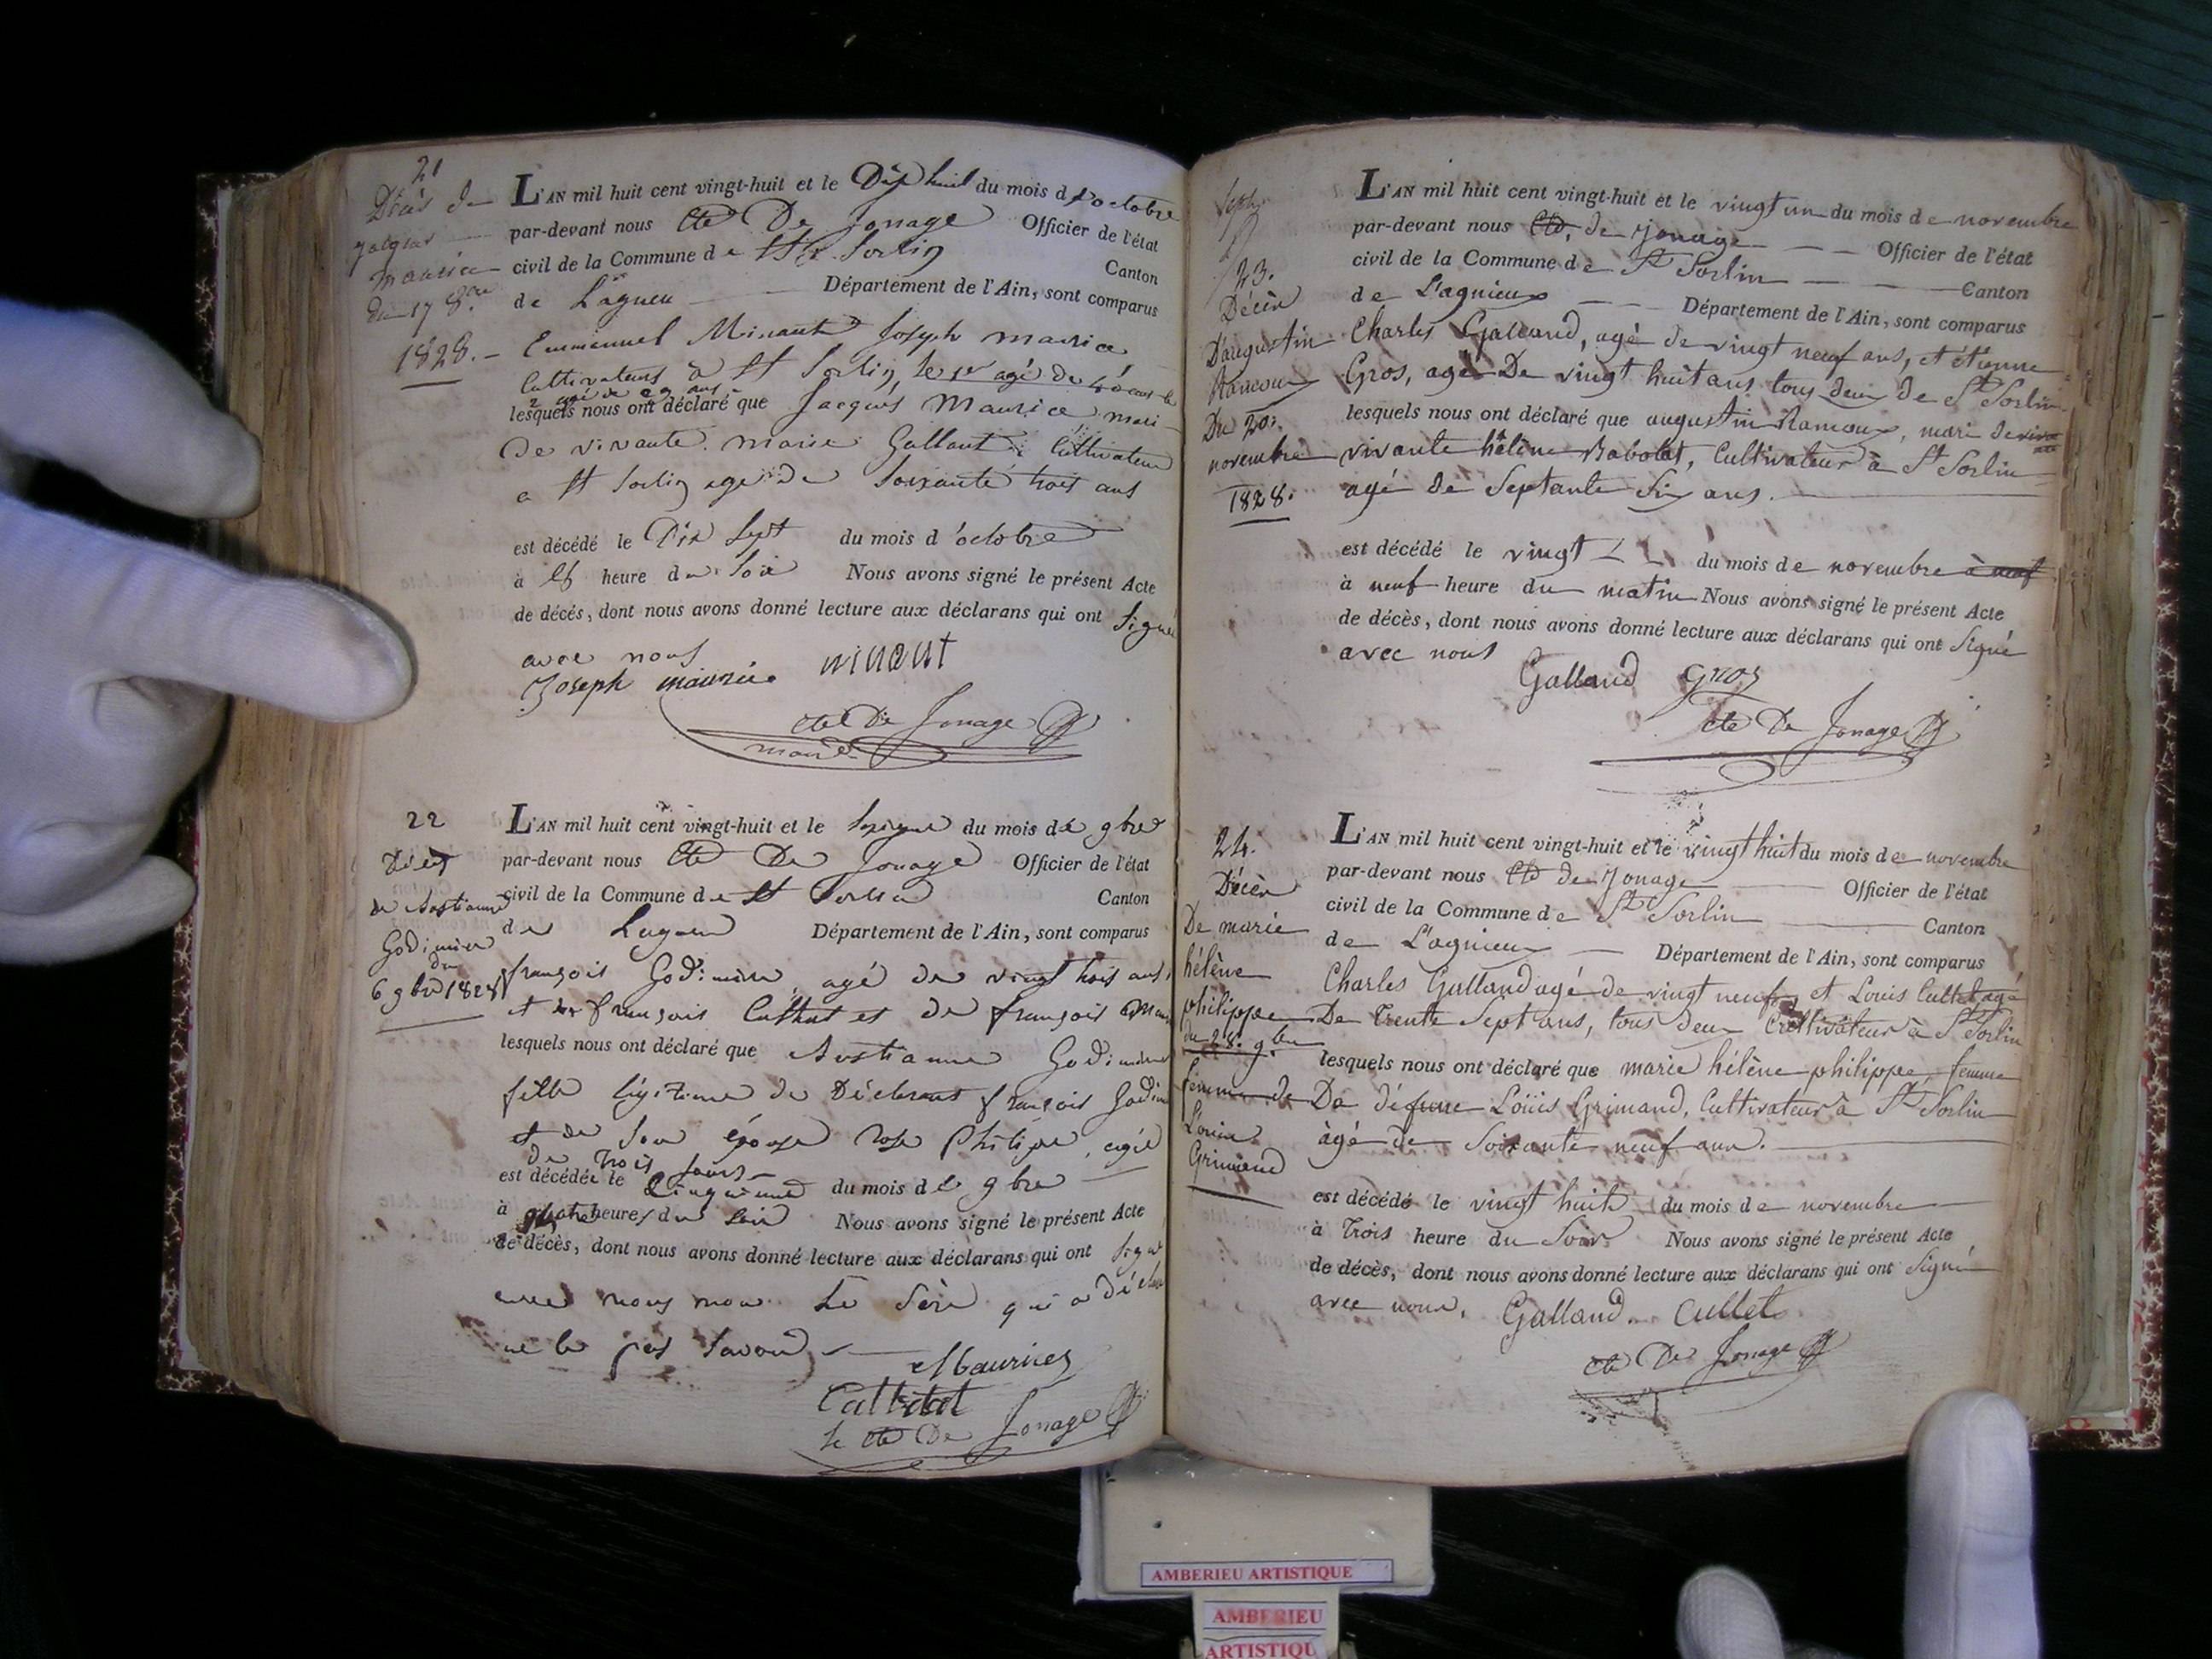 21
Décès de
jacque
maurice
du 17 8bre
1828. -
L'AN mil huit cent vingt-huit et le Dix huit du mois d'octobre
par-devant nous Cte De Jonage Officier de l'état
civil de la Commune de St Sorlin Canton
de Lagneu Département de l'Ain, sont comparus
Emmanuel Minant Joseph maurice
Cultivateurs à St Sorlin, le 1er agé de 40 ans le
2 agé de ans
lesquels nous ont déclaré que Jacques Maurice mari
De vivante marie Gallant Cultivateur
a St Sorlin age de Soixante trois ans
est décédé le Dix Sept du mois d'octobre
à heure du Soir Nous avons signé le présent Acte
de décès, dont nous avons donné lecture aux déclarans qui ont Signé
avec nous
Joseph maurice minant
cte De Jonage
maire
22
Décès
de
Godimière
du
6 9bre 1828
L'AN mil huit cent vingt-huit et le Sixième du mois de 9bre
par-devant nous Cte De Jonage Officier de l'état
civil de la Commune de St Sorlin Canton
de Lagneu Département de l'Ain, sont comparus
françois Godimière agé de vingt trois ans,
et françois et de françois
lesquels nous ont déclaré que Godimière
fille légitime du Déclarant françois
et de Son épouse rose Philipe, agée
de Trois Jours
est décédée le Cinquieme du mois de 9bre
à quatre heures du Soir Nous avons signé le présent Acte
de décès, dont nous avons donné lecture aux déclarans qui ont Signé
avec nous non Le Père qui a déclaré
ne le pas Savoir
Maurice
le cte De Jonage
Septe
23.
Décès
D'augustin
Rameaux
Du 20.
novembre
1828.
L'AN mil huit cent vingt-huit et le vingt un du mois de novembre
par-devant nous Cte, de Jonage Officier de l'état
civil de la Commune de St Sorlin Canton
de L'agnieux Département de l'Ain, sont comparus
Charles Galland, agé de vingt neuf ans, et étienne
Gros, agé De vingt huit ans tous deux de St Sorlin
lesquels nous ont déclaré que augustin Rameaux, mari de
vivante hélène Babolat, Cultivateur à St Sorlin
agé de Septante Six ans.
est décédé le vingt du mois de novembre à neuf
à neuf heure du matin Nous avons signé le présent Acte
de décès, dont nous avons donné lecture aux déclarans qui ont Signé
avec nous
Galland Gros
cte De Jonage
24.
Décès
De marie
hélène
philippe
du 28. 9bre
femme de
Louis
Grimand
L'AN mil huit cent vingt-huit et le vingt huit du mois de novembre
par-devant nous Cte de Jonage Officier de l'état
civil de la Commune de St Sorlin Canton
de L'agnieux Département de l'Ain, sont comparus
Charles Galland agé de vingt neuf, et Louis Cullet agé
De Trente Sept ans, tous deux Cultivateur à St Sorlin
lesquels nous ont déclaré que marie hélène philippe, femme
De défunt Loüis Grimand, Cultivateur à St Sorlin
âgé de Soixante neuf ans.
est décédé le vingt huit du mois de novembre
à Trois heure du Soir Nous avons signé le présent Acte
de décès, dont nous avons donné lecture aux déclarans qui ont Signé
avec nous. Galland. Cullet
cte De Jonage
AMBERIEU ARTISTIQUE
AMBERIEU
ARTISTIQU